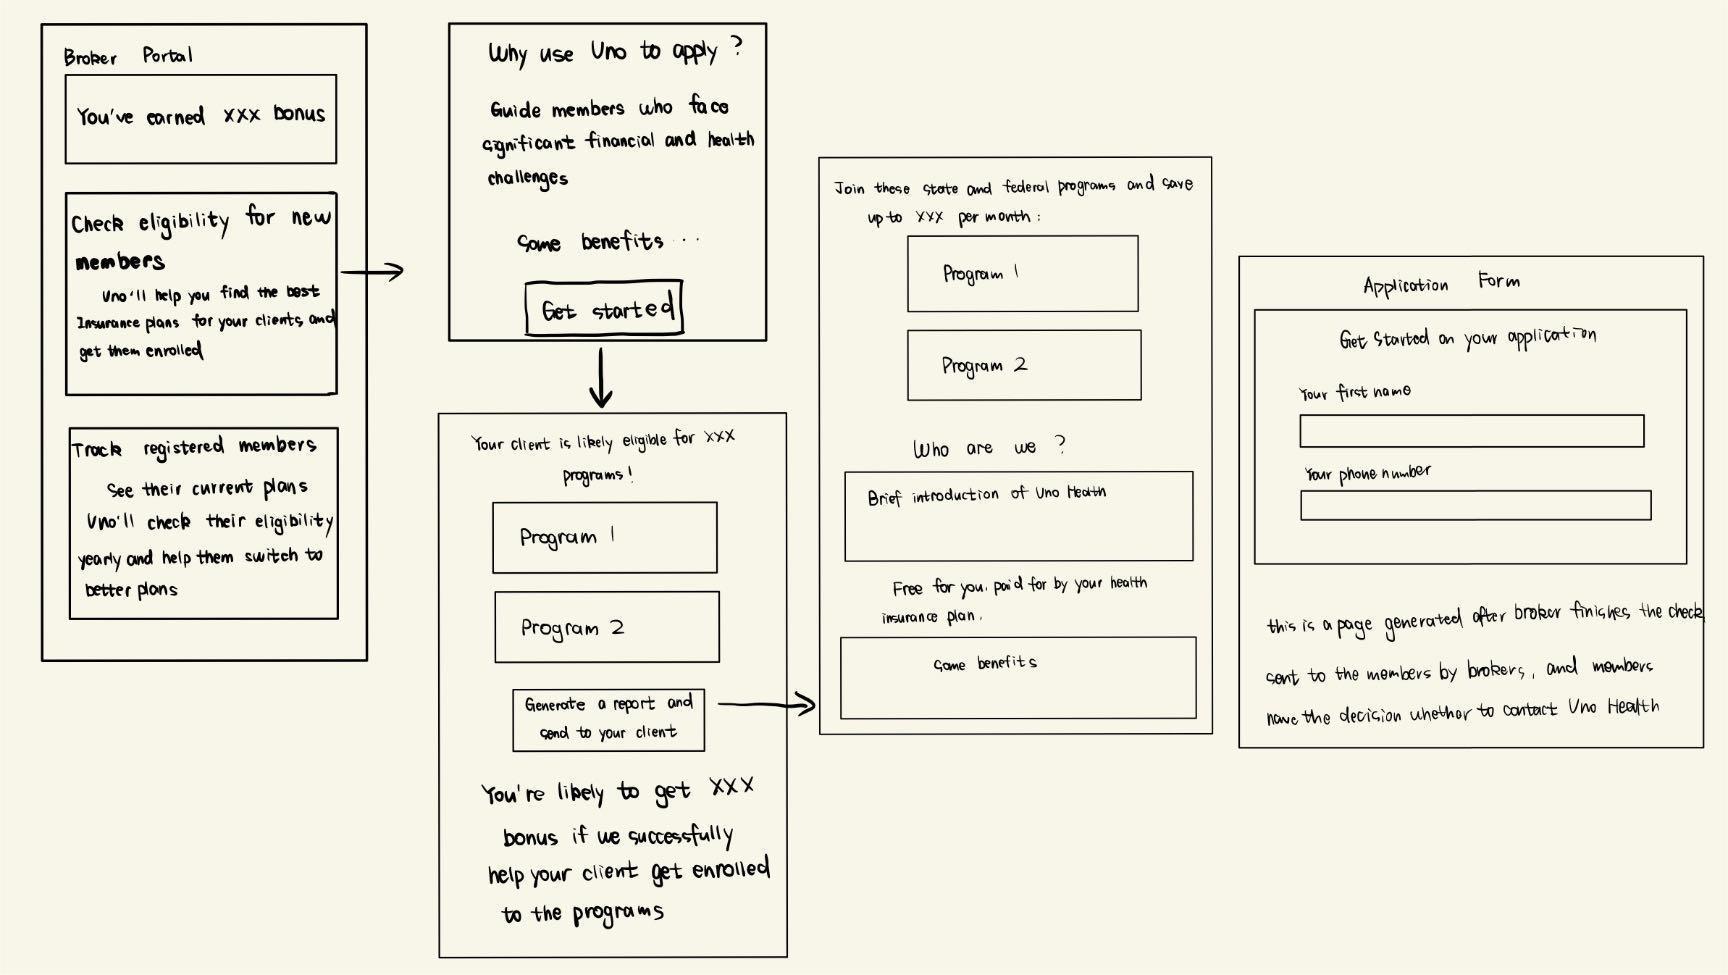 Broker Portal
You've earned XXX bonus
Check eligibility for new
members
Uno'll help you find the best
Insurance plans for your clients and
get them enrolled
Track registered members
See their current plans
Uno'll check their eligibility
yearly and help them switch to
better plans
Why use Uno to apply?
Guide members who face
significant financial and health
challenges
Some benefits ...
Get started
Your client is likely eligible for XXX
programs!
Program 1
Program 2
Generate a report and
send to your client
You're likely to get XXX
bonus if we successfully
help your client get enrolled
to the programs
Join these state and federal programs and save
up to XXX per month:
Program 1
Program 2
Who are we?
Brief introduction of Uno Health
Free for you, paid for by your health
insurance plan.
Some benefits
Application Form
Get Started on your application
Your first name
Your phone number
this is a page generated after broker finishes the check
sent to the members by brokers, and members
have the decision whether to contact Uno Health